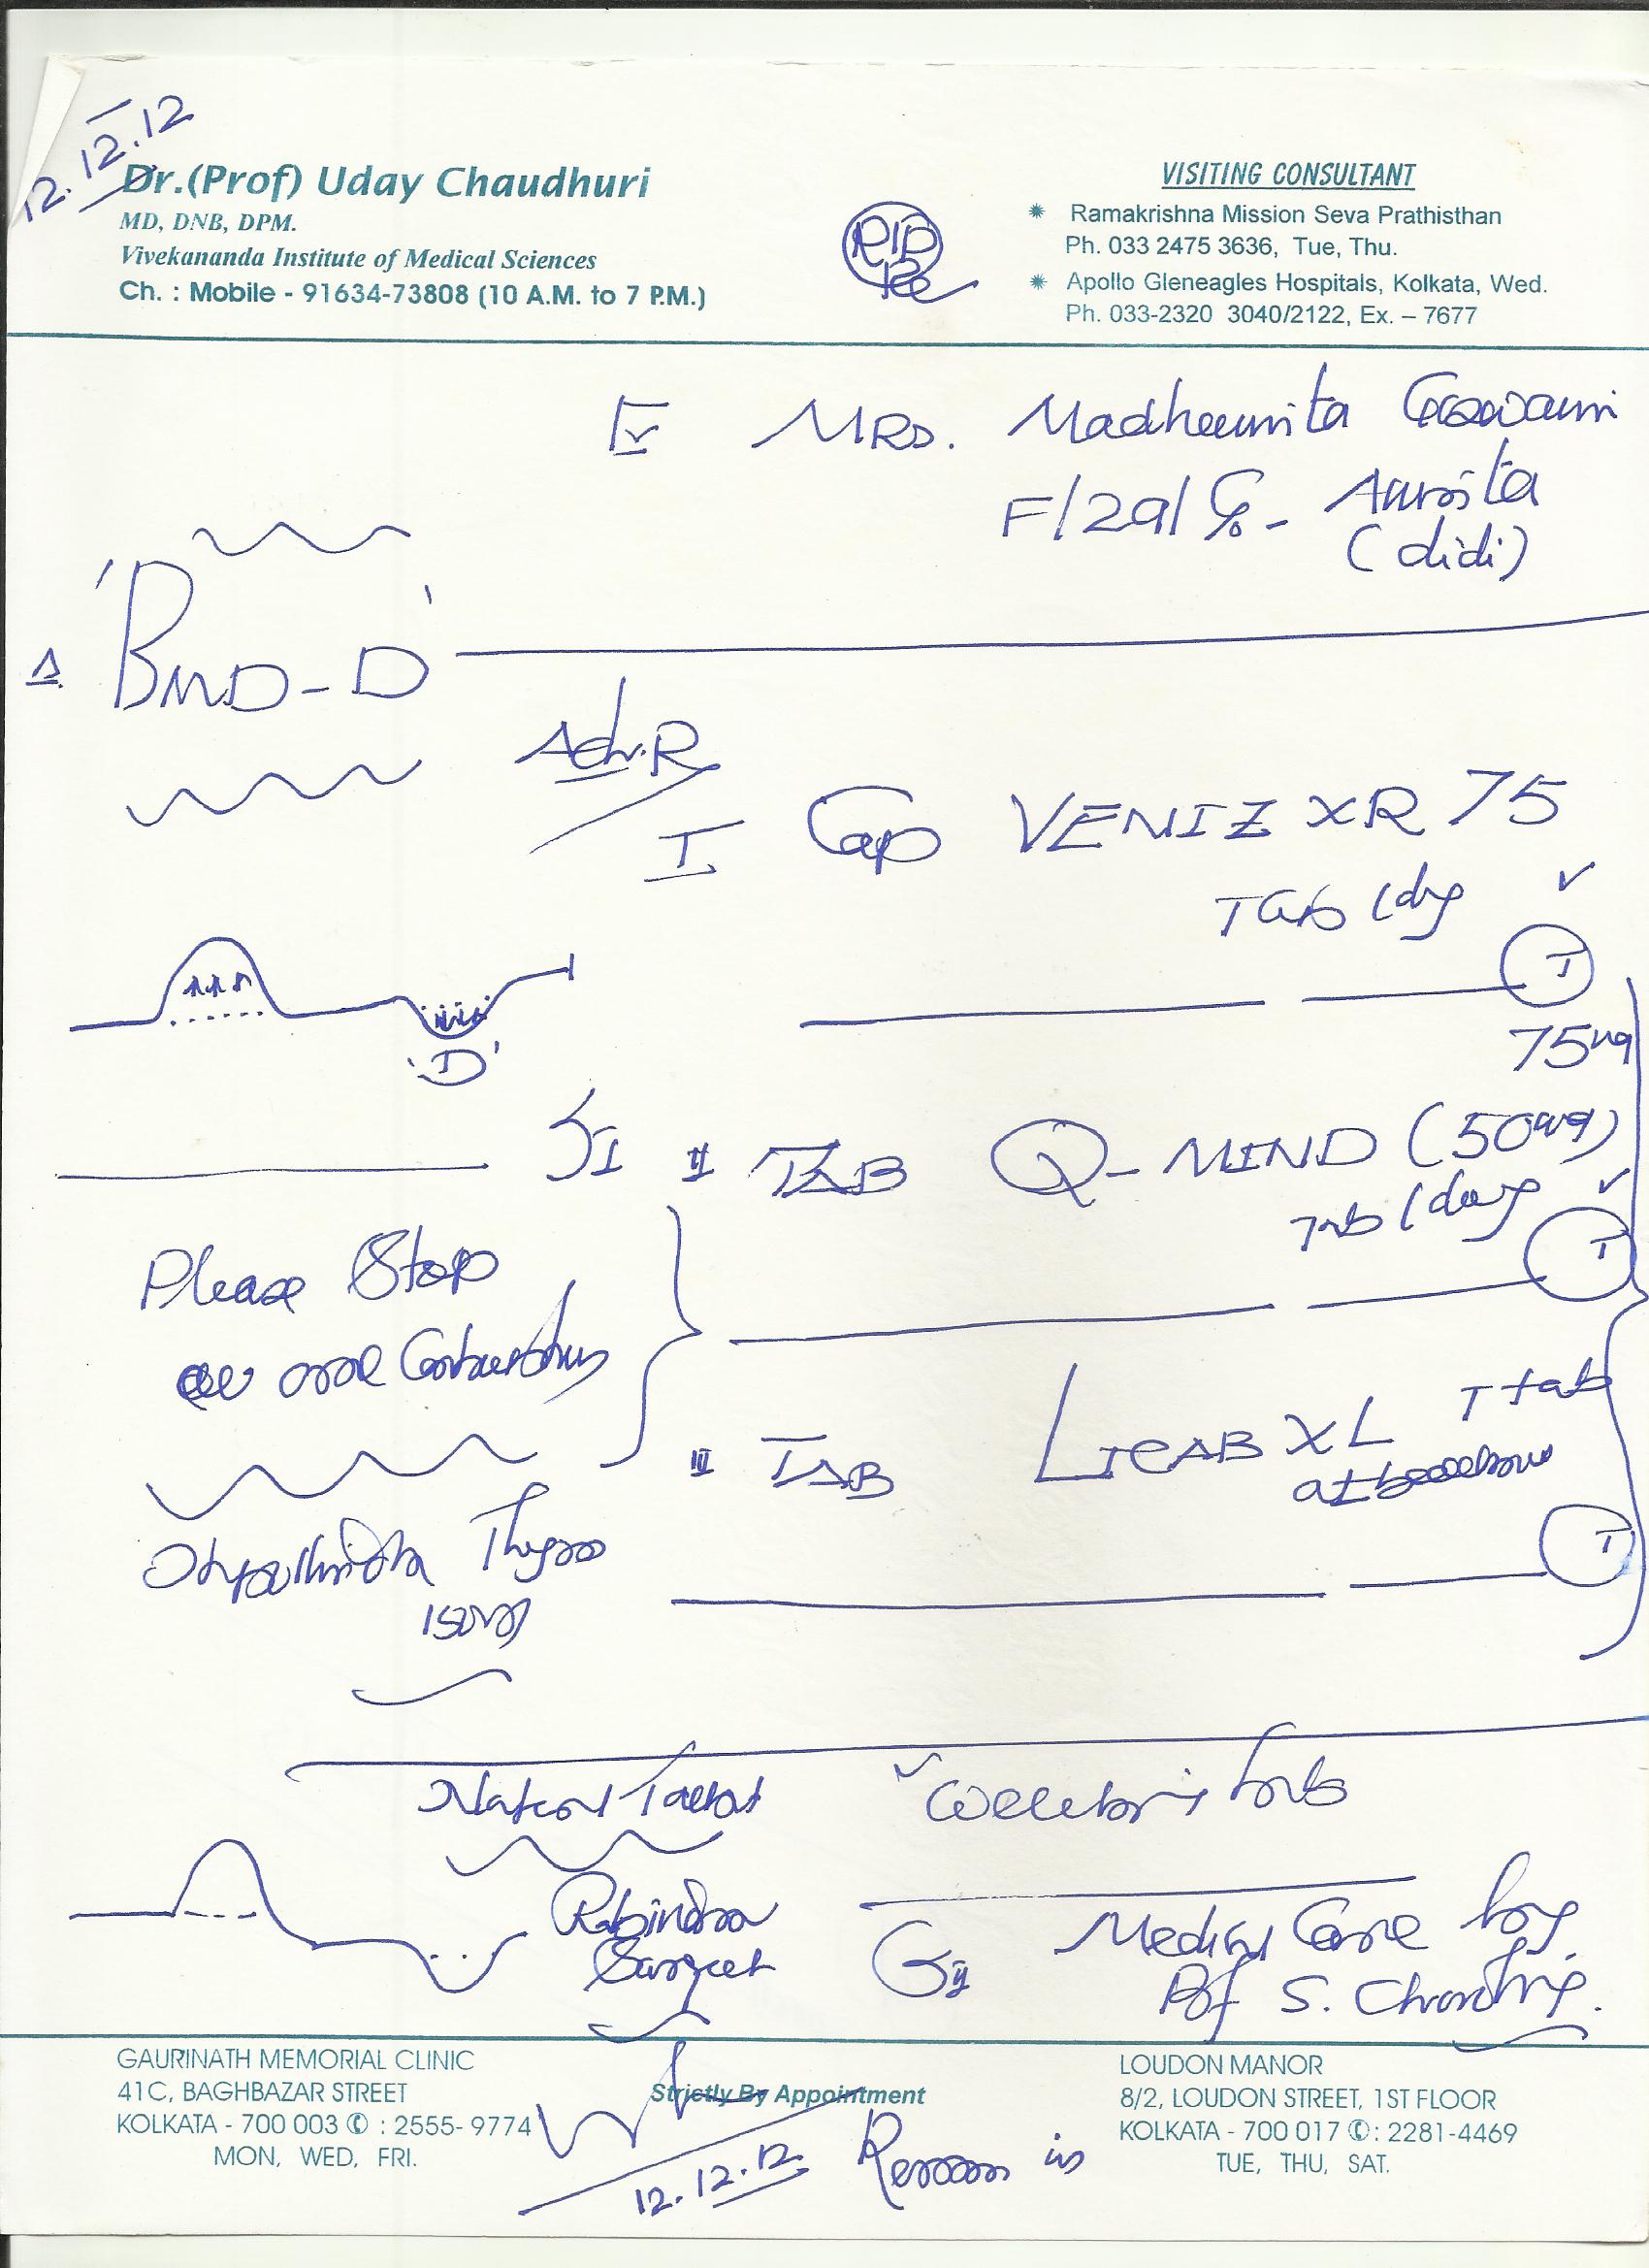 12.12.12
Dr.(Prof) Uday Chaudhuri
MD, DNB, DPM.
Vivekananda Institute of Medical Sciences
Ch. : Mobile - 91634-73808 (10 A.M. to 7 P.M.)
VISITING CONSULTANT
Ramakrishna Mission Seva Prathisthan
Ph. 033 2475 3636, Tue, Thu.
Apollo Gleneagles Hospitals, Kolkata, Wed.
Ph. 033-2320 3040/2122, Ex. – 7677
MRS. Madhumita Goswami
F/29/ C/o - Amrita
(didi)
Δ 'BMD-D'
Adv. R
I Cap VENIZ XR 75
T tab / day
I
75mg
'D'
II TAB Q-MIND (50mg)
Tab / day
I
Please Stop
all oral
III TAB LICAB XL T tab
at
I
Thyro
Rabindra
Sangeet
Medical Care by
Prof S. Chowdhury.
GAURINATH MEMORIAL CLINIC
41C, BAGHBAZAR STREET
KOLKATA - 700 003 ✆ : 2555-9774
MON, WED, FRI.
Strictly By Appointment
12.12.12
in
LOUDON MANOR
8/2, LOUDON STREET, 1ST FLOOR
KOLKATA - 700 017 ✆: 2281-4469
TUE, THU, SAT.